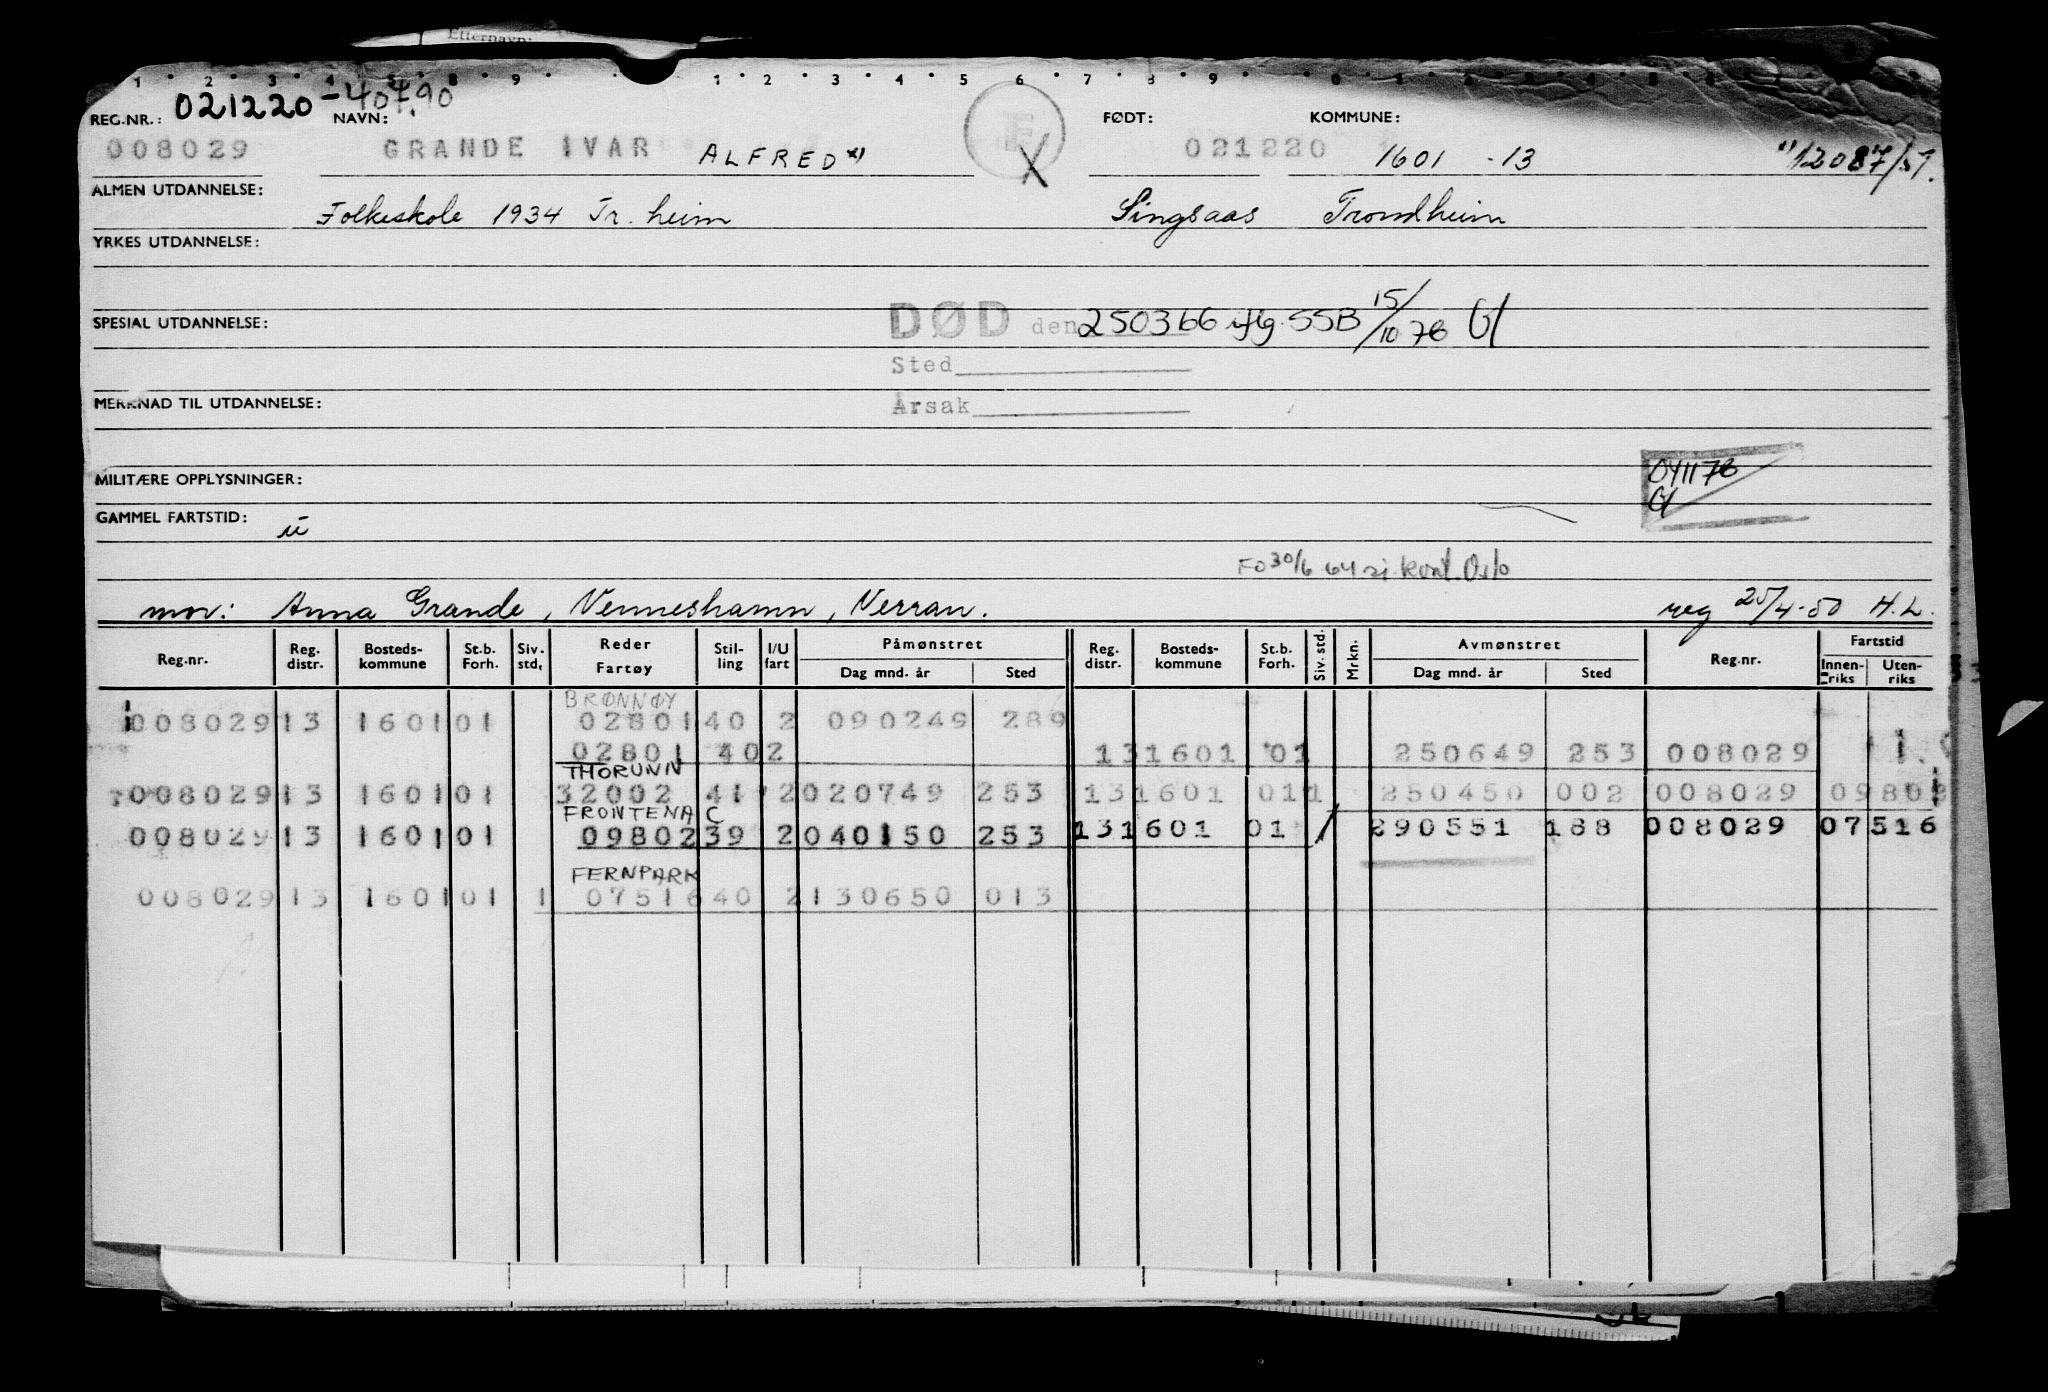 Etternavn:
1 2 3 4 5 8 9 1 2 3 4 5 6 7 8 9
REG.NR.: 021220-40790 NAVN: FØDT: KOMMUNE:
008029 GRANDE IVAR ALFRED x) E X 021220 1601 -13 "12087/51.
ALMEN UTDANNELSE: Folkeskole 1934 Tr. heim Singsaas Trondheim
YRKES UTDANNELSE:
SPESIAL UTDANNELSE: DØD den 250366 iflg. SSB 15/10 78
Sted
MERKNAD TIL UTDANNELSE: Årsak
MILITÆRE OPPLYSNINGER: 041178
GAMMEL FARTSTID: u
FO 30/6 64 sj. kont. Oslo
mor: Anna Grande, Venneshamn, Verran. reg 25/4-50 H.L.
Reg.nr. Reg. distr. Bosteds-kommune St.b. Forh. Siv. std. Reder Fartøy Stil-ling I/U fart Påmønstret Dag mnd. år Sted Reg. distr. Bosteds-kommune St.b. Forh. Siv. std. Mrkn. Avmønstret Dag mnd. år Sted Reg.nr. Fartstid Innen-riks Uten-riks
BRØNNØY
008029 13 1601 01 02801 40 2 090249 289
02801 40 2 13 1601 01 250649 253 008029
THORUNN
008029 13 1601 01 32002 41 2 020749 253 13 1601 01 1 250450 002 008029 09802
FRONTENAC
008029 13 1601 01 09802 39 2 040150 253 13 1601 01 / 290551 188 008029 07516
FERNPARK
008029 13 1601 01 1 07516 40 2 130650 013